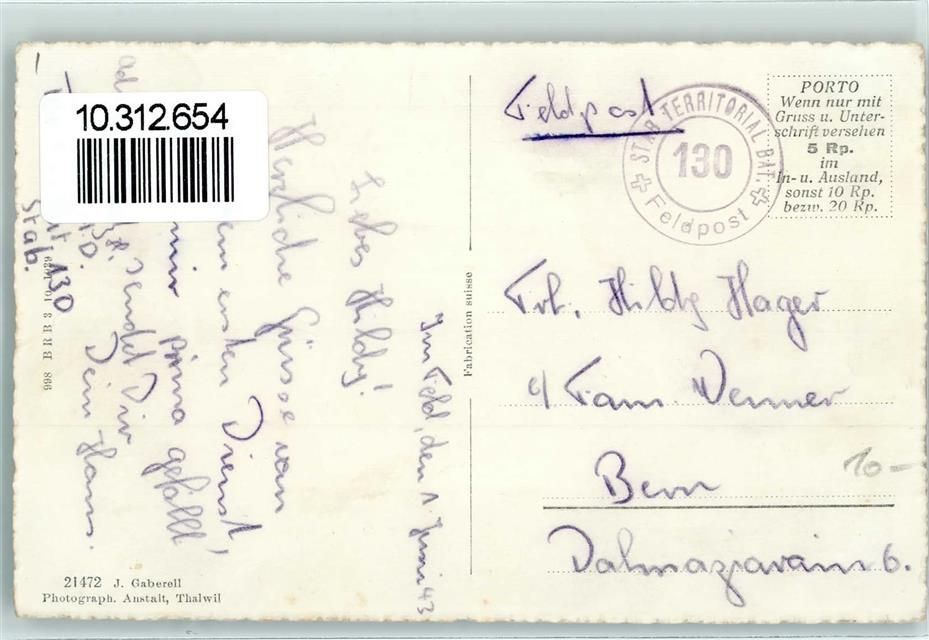 Im Feld, den 1. Juni 43
Liebes Hildy!
Herzliche Grüsse von
ersten Dienst,
mir prima gefällt
sendet Dir
Dein Hans.
130
Stab.
10.312.654
998 BRB 3 10
21472 J. Gaberell
Photograph. Anstalt, Thalwil
Fabrication suisse
Feldpost
STAB TERRITORIAL BAT.
130
Feldpost
PORTO
Wenn nur mit
Gruss u. Unter-
schrift versehen
5 Rp.
im
In- u. Ausland,
sonst 10 Rp.
bezw. 20 Rp.
Frl. Hildy Hager
c/ Fam. Venner
Bern
Dalmazirain 6.
10-